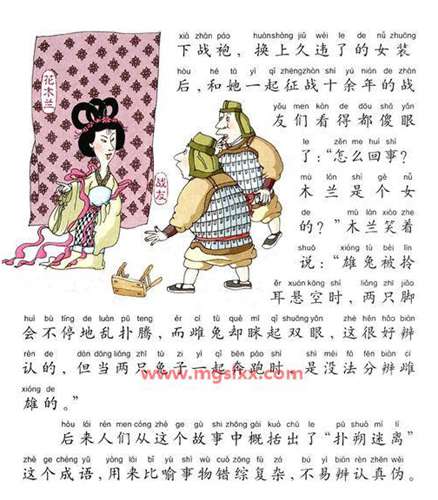 xià zhàn páo huànshàng jiǔ wéi le de nǚ zhuāng
下战袍，换上久违了的女装
hòu hé tā yì qǐ zhēngzhàn shí yú nián de zhàn
后，和她一起征战十余年的战
yǒu men kàn de dōu shǎ yǎn
友们看得都傻眼
le zěn me huí shì
了：“怎么回事？
mù lán shì gè nǚ
木兰是个女
de mù lán xiào zhe
的？”木兰笑着
shuō xióng tù bèi līn
说：“雄兔被拎
ěr xuán kōng shí liǎng zhī jiǎo
耳悬空时，两只脚
huì bù tíng de luàn pū teng ér cí tù què mī qǐ shuāng yǎn zhè hěn hǎo biàn
会不停地乱扑腾，而雌兔却眯起双眼，这很好辨
rèn de dàn dāng liǎng zhī tù zi yì qǐ bēn pǎo shí shì méi fǎ fēn biàn cí
认的，但当两只兔子一起奔跑时，是没法分辨雌
xióng de
雄的。”
hòu lái rén men cóng zhè ge gù shi zhōng gài kuò chū le pū shuò mí lí
后来人们从这个故事中概括出了“扑朔迷离”
zhè ge chéng yǔ yòng lái bǐ yù shì wù cuò zōng fù zá bú yì biàn rèn zhēn wěi
这个成语，用来比喻事物错综复杂，不易辨认真伪。
花木兰
战友
www.mgsixx.com